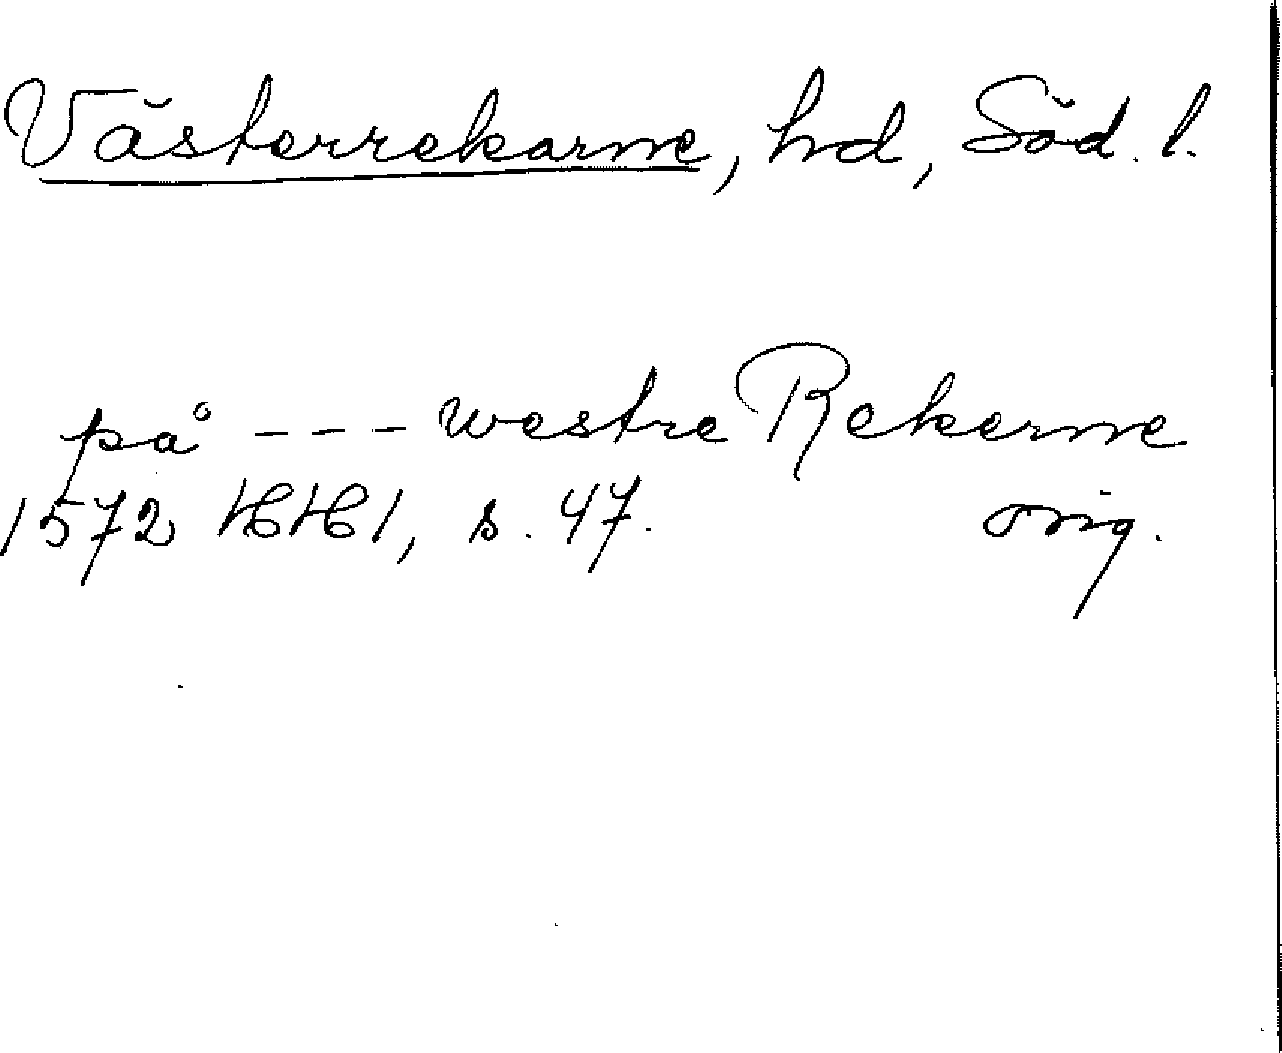 Västerrekarne, hd, Söd. l.
på --- westre Rekerne
1572 HH1, s. 47. orig.